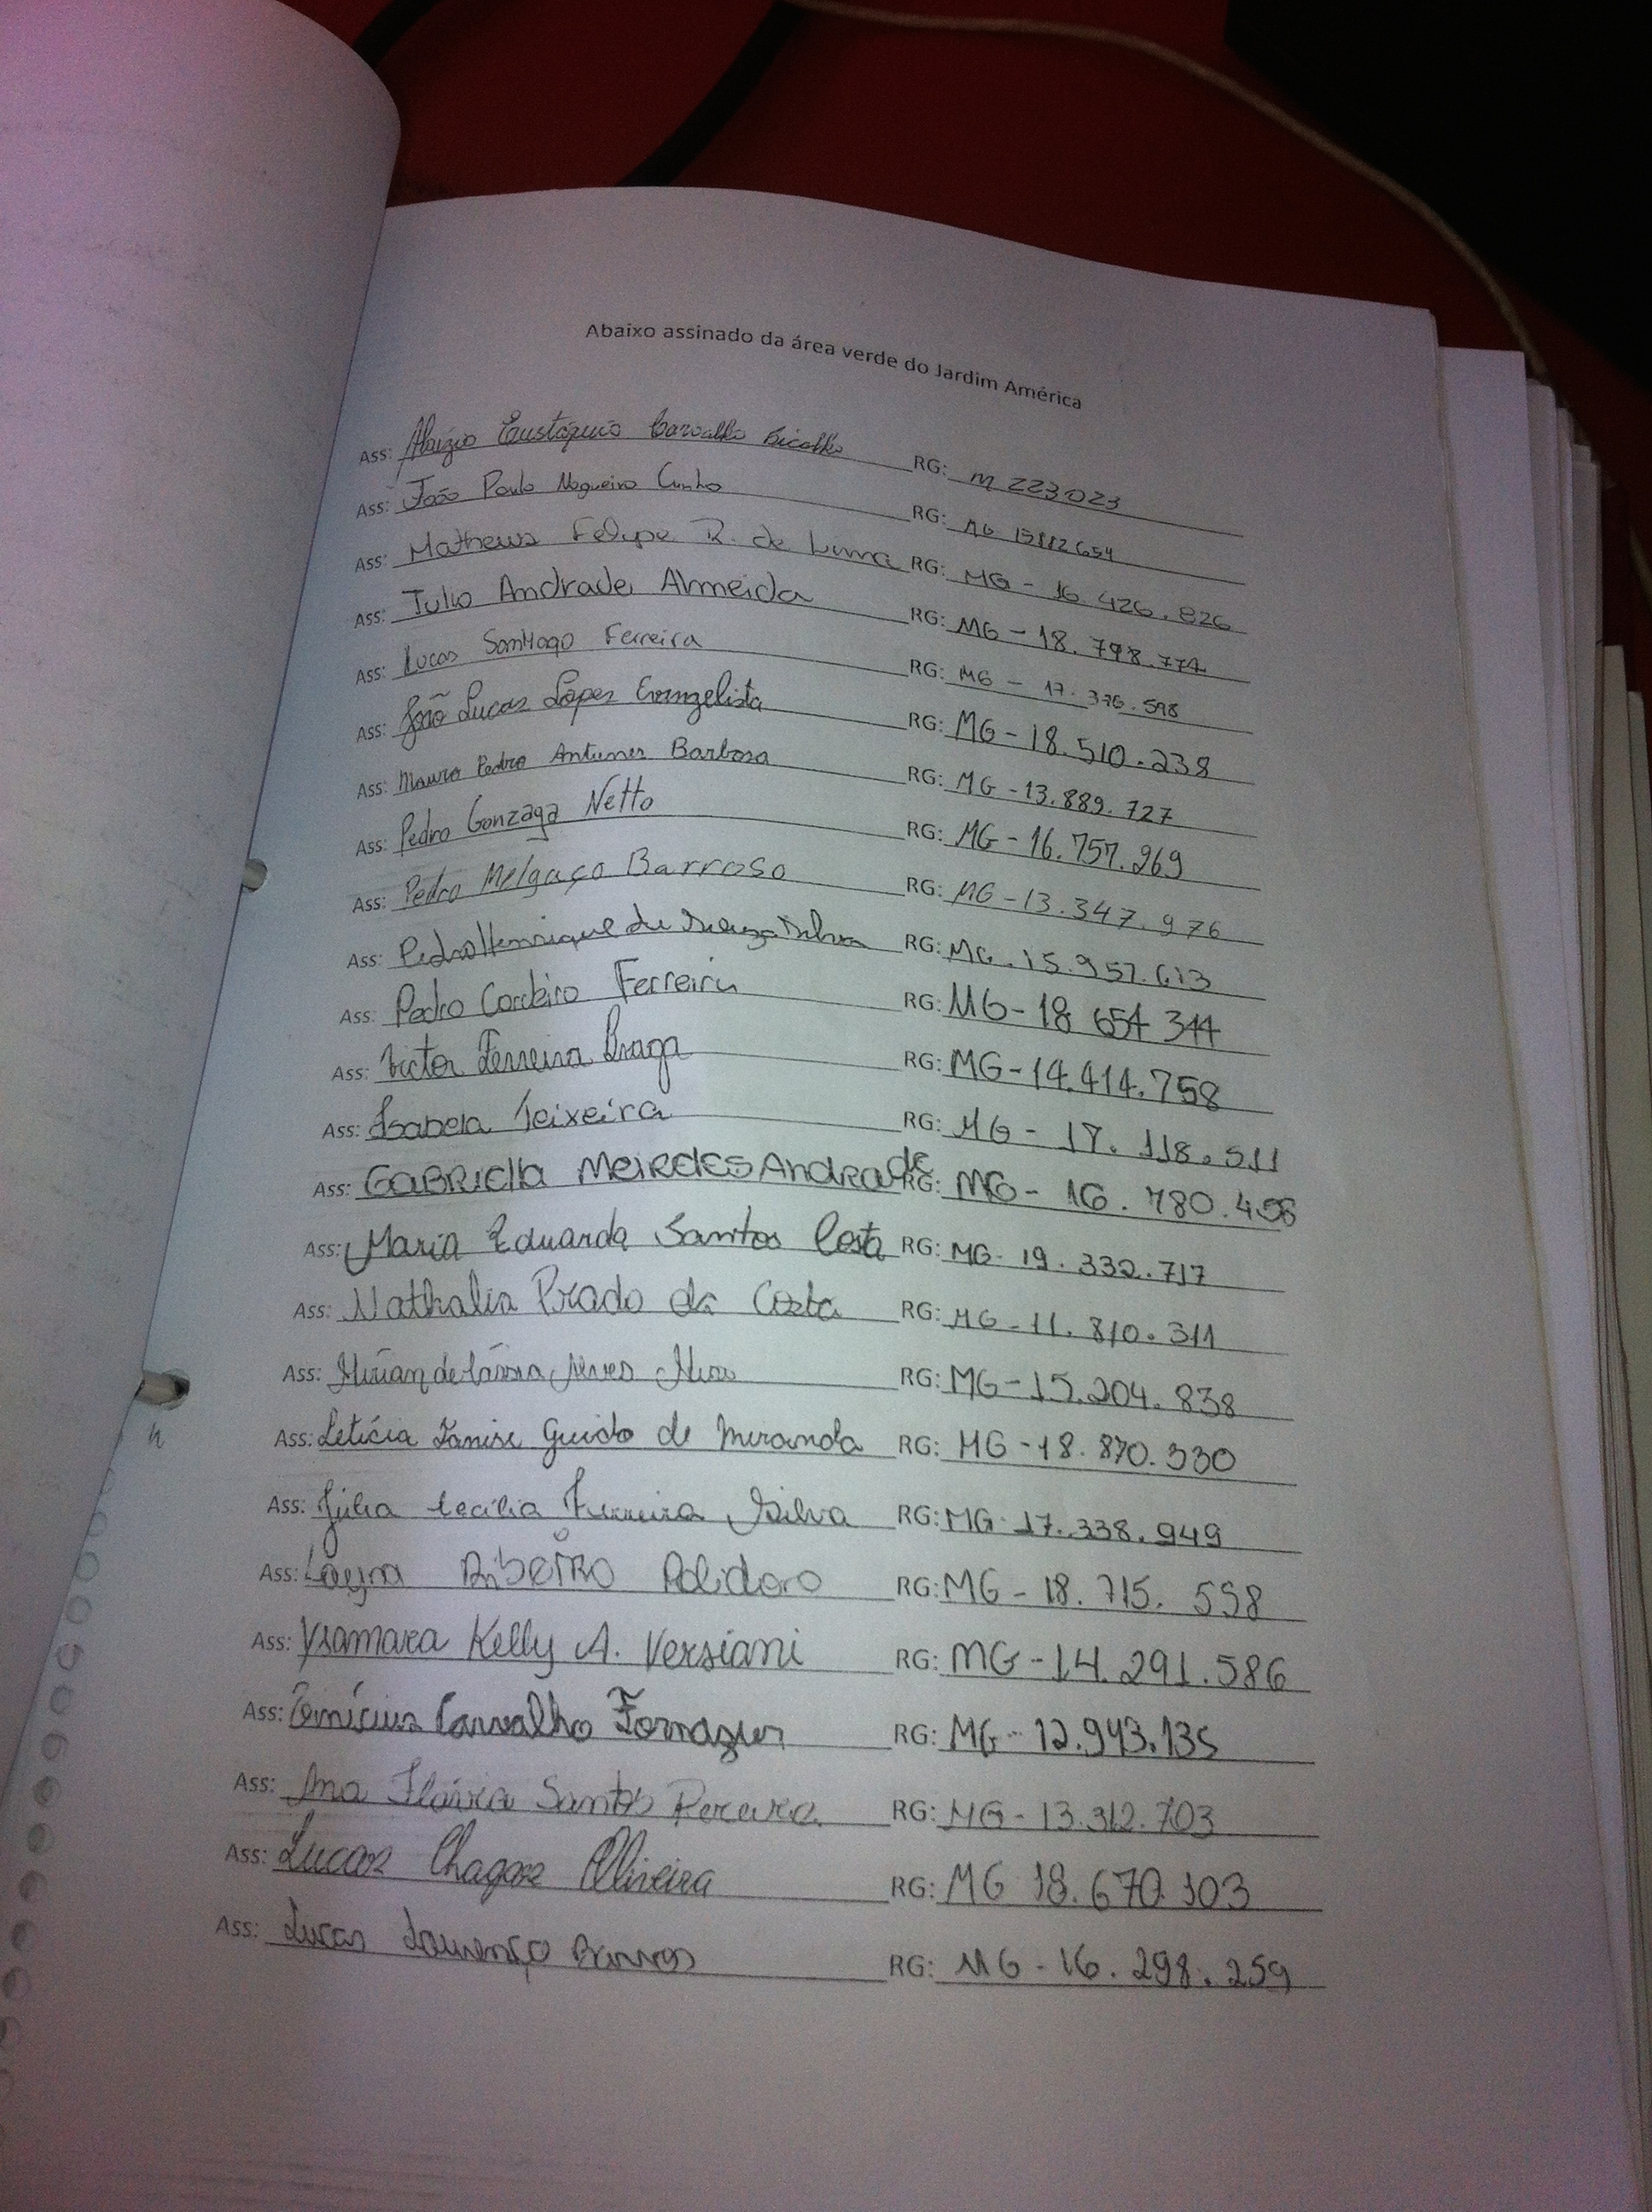 Abaixo assinado da área verde do Jardim América
Ass: Aluízio Eustáquio Carvalho Bicalho RG: M 223023
Ass: João Paulo Nogueira Cunha RG: MG
Ass: Matheus Felipe R. de Lima RG: MG - 16.426.826
Ass: Julio Andrade Almeida RG: MG - 18.798.774
Ass: Lucas Santiago Ferreira RG: MG - 17.376.598
Ass: João Lucas Lopes Evangelista RG: MG - 18.510.238
Ass: Mauro Pedro Antunes Barbosa RG: MG - 13.889.727
Ass: Pedro Gonzaga Netto RG: MG - 16.757.969
Ass: Pedro Melgaço Barroso RG: MG - 13.347.976
Ass: Pedro Henrique de Souza Silva RG: MG.15.957.613
Ass: Pedro Cordeiro Ferreira RG: MG - 18 654 344
Ass: Victor Ferreira Braga RG: MG - 14.414.758
Ass: Isabela Teixeira RG: MG - 17.118.511
Ass: GABRIElla MEIREdES ANdRAde RG: MG - 16.780.456
Ass: Maria Eduarda Santos Costa RG: MG - 19.332.717
Ass: Nathalia Prado da Costa RG: MG - 11.810.311
Ass: Mirian de Alves RG: MG - 15.204.838
Ass: Letícia Guido de Miranda RG: MG - 18.870.330
Ass: Júlia Cecília Ferreira Silva RG: MG 17.338.949
Ass: Layra Ribeiro Polidoro RG: MG - 18.715.598
Ass: Ysamara Kelly A. Versiani RG: MG - 14.291.586
Ass: Carvalho RG: MG - 12.943.135
Ass: Ana Flávia Santos Pereira RG: MG - 13.312.703
Ass: Lucas Chagas Oliveira RG: MG 18.670.103
Ass: Lucas Lourenço Barros RG: MG - 16.298.259